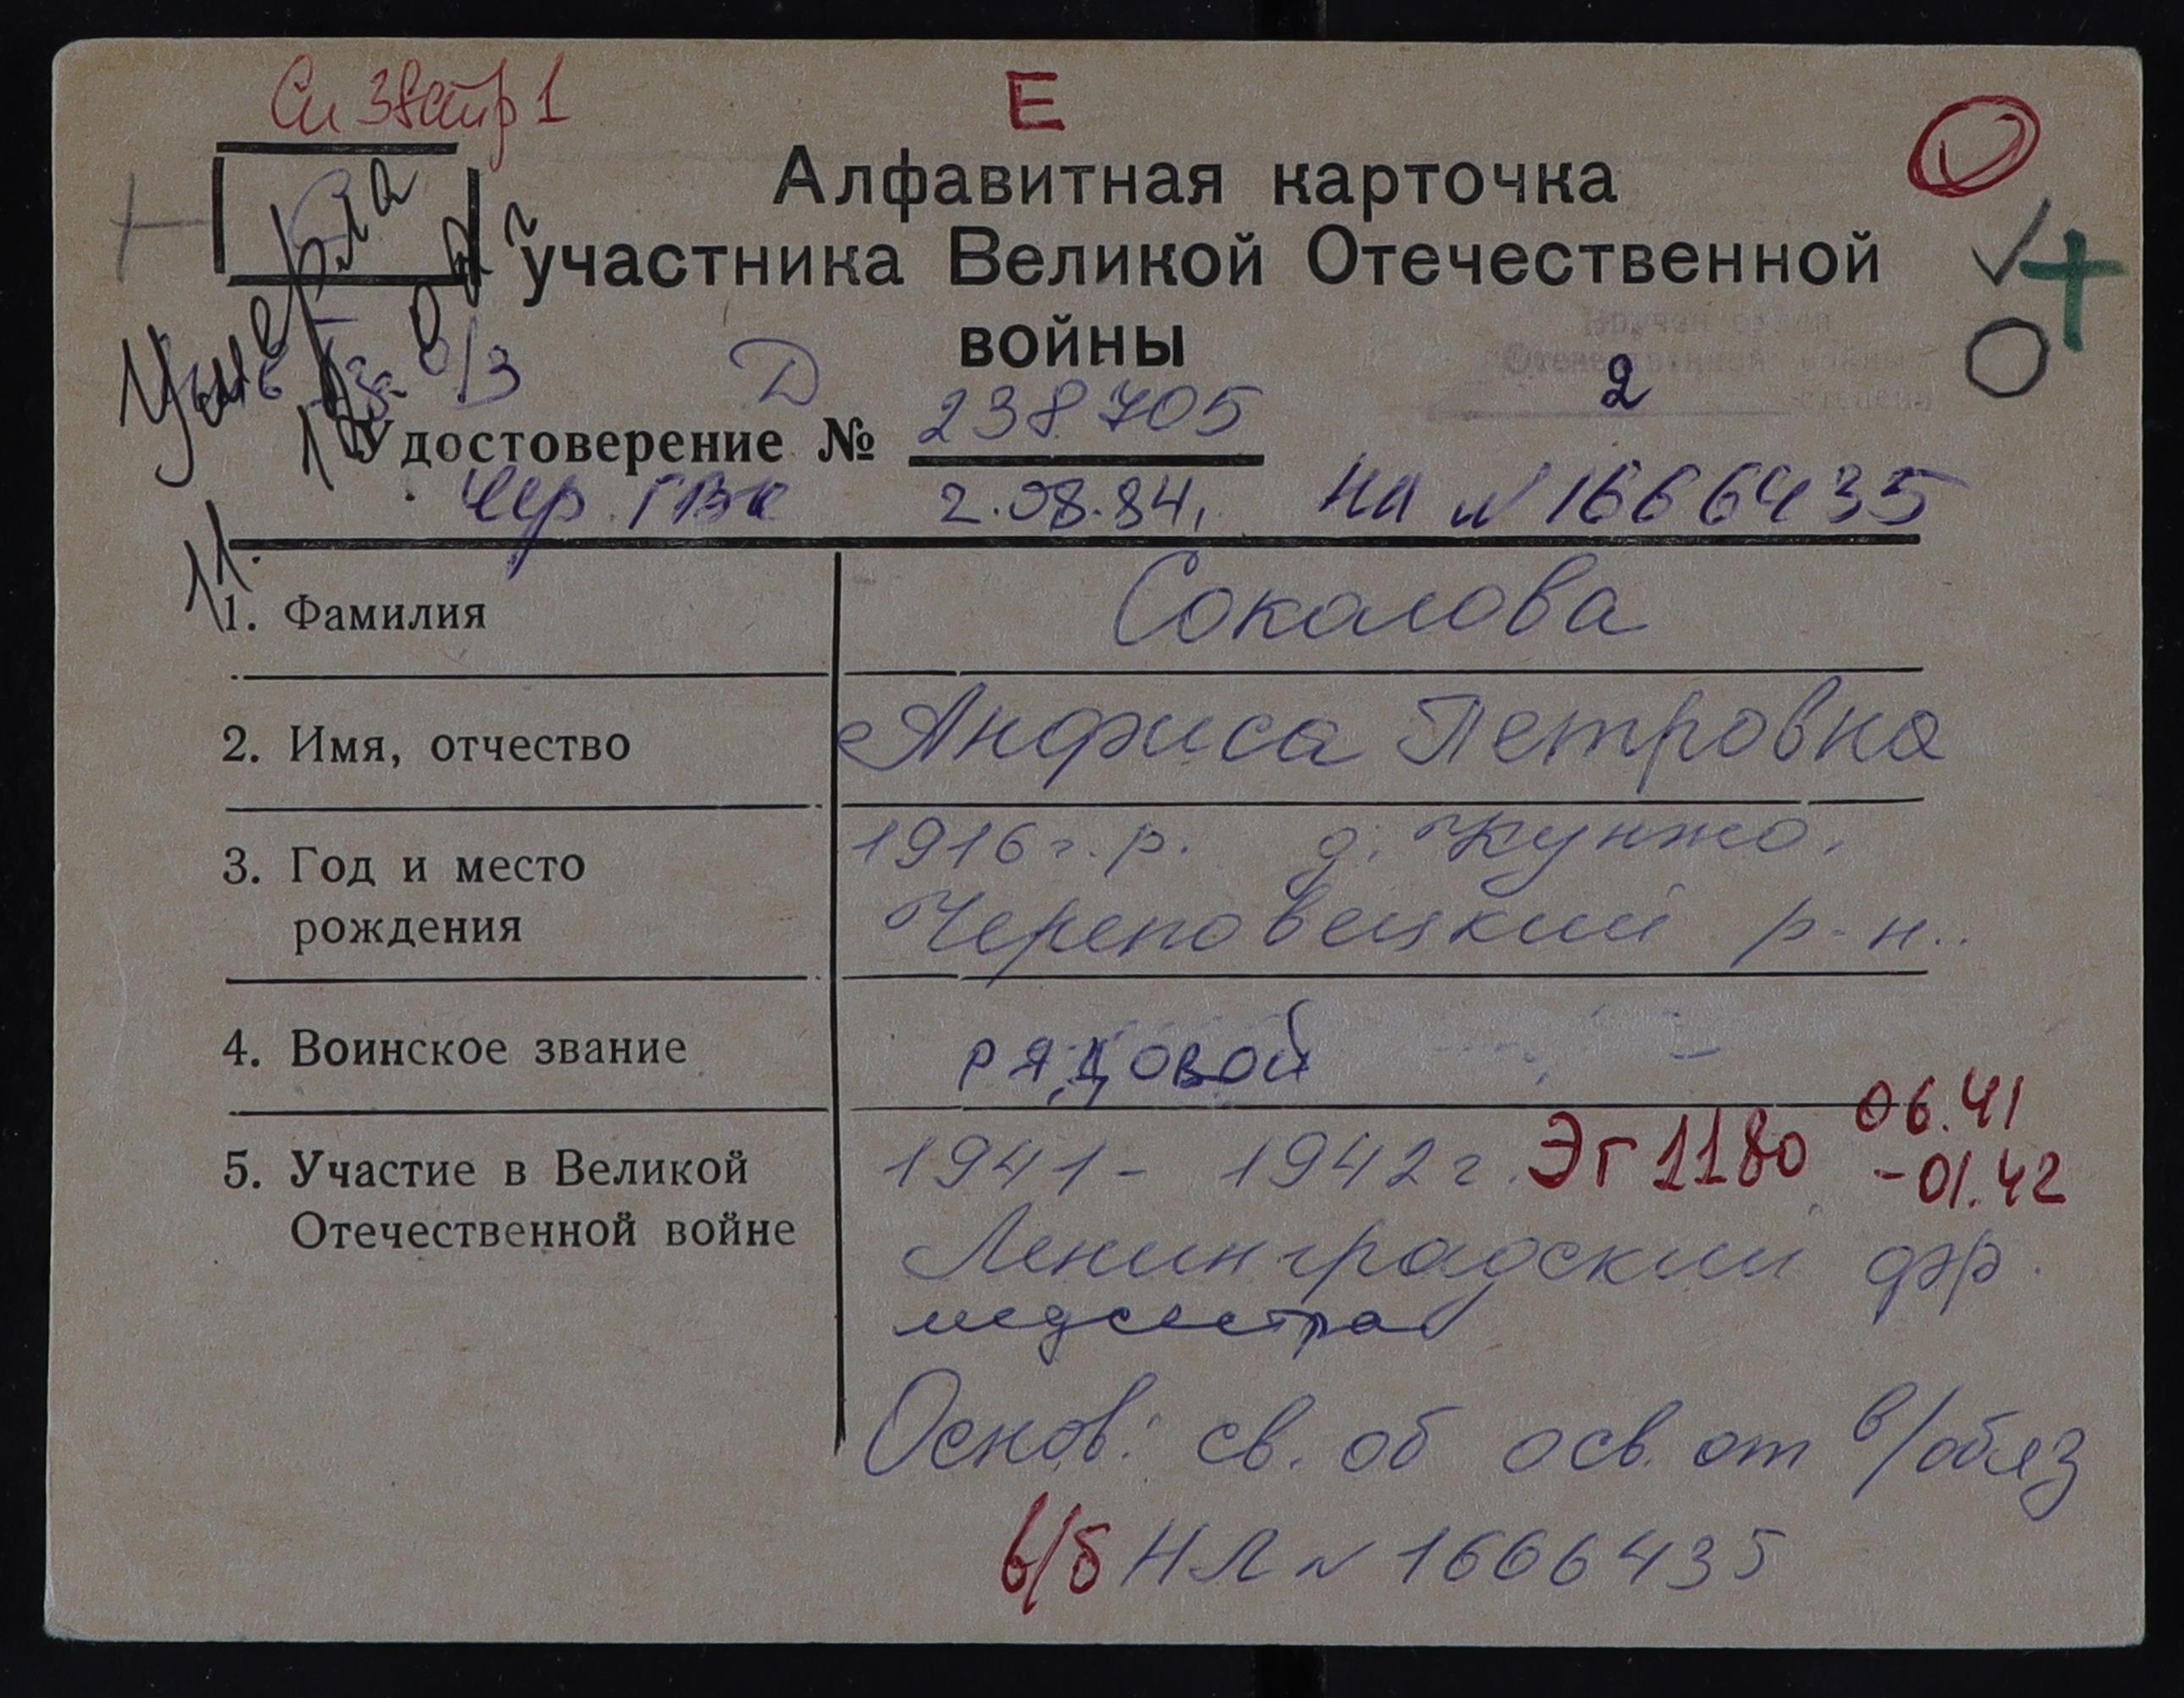 Е
Алфавитная карточка
участника Великой Отечественной
войны
Умерла
Д
2
Удостоверение № 238705
Чер. ГВК 2.08.84. НЛ № 1666435
1. Фамилия Соколова
2. Имя, отчество Анфиса Петровна
3. Год и место 1916 г.р. д.
рождения Череповецкий р-н.
4. Воинское звание рядовой
06.41
5. Участие в Великой 1941- 1942 г. ЭГ 1180 -01.42
Отечественной войне Ленинградский фр.
медсестра
Основ: св. об осв. от в/обяз
в/б НЛ № 1666435